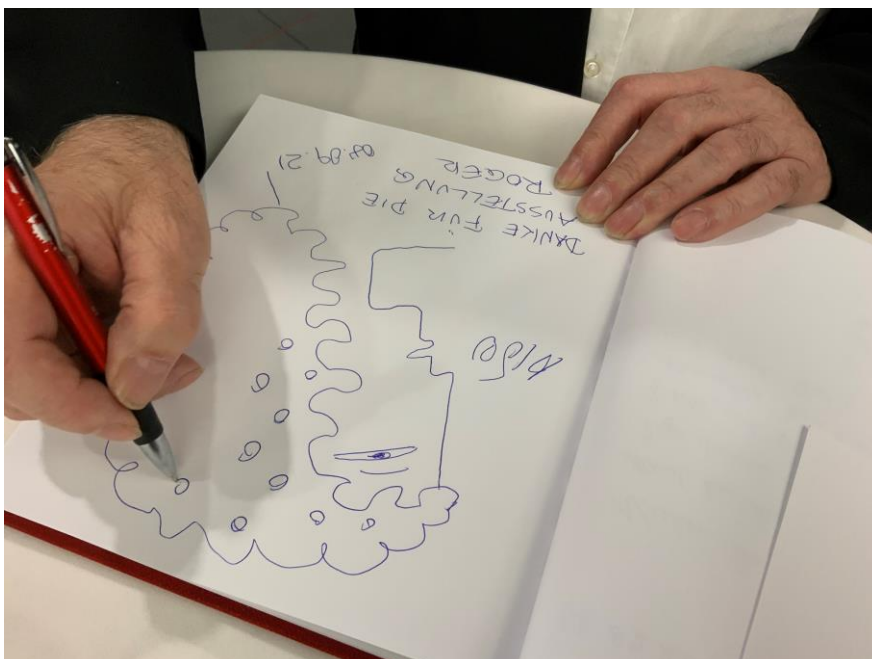 DANKE FÜR DIE
AUSSTELLUNG
ROGER
08.09.21